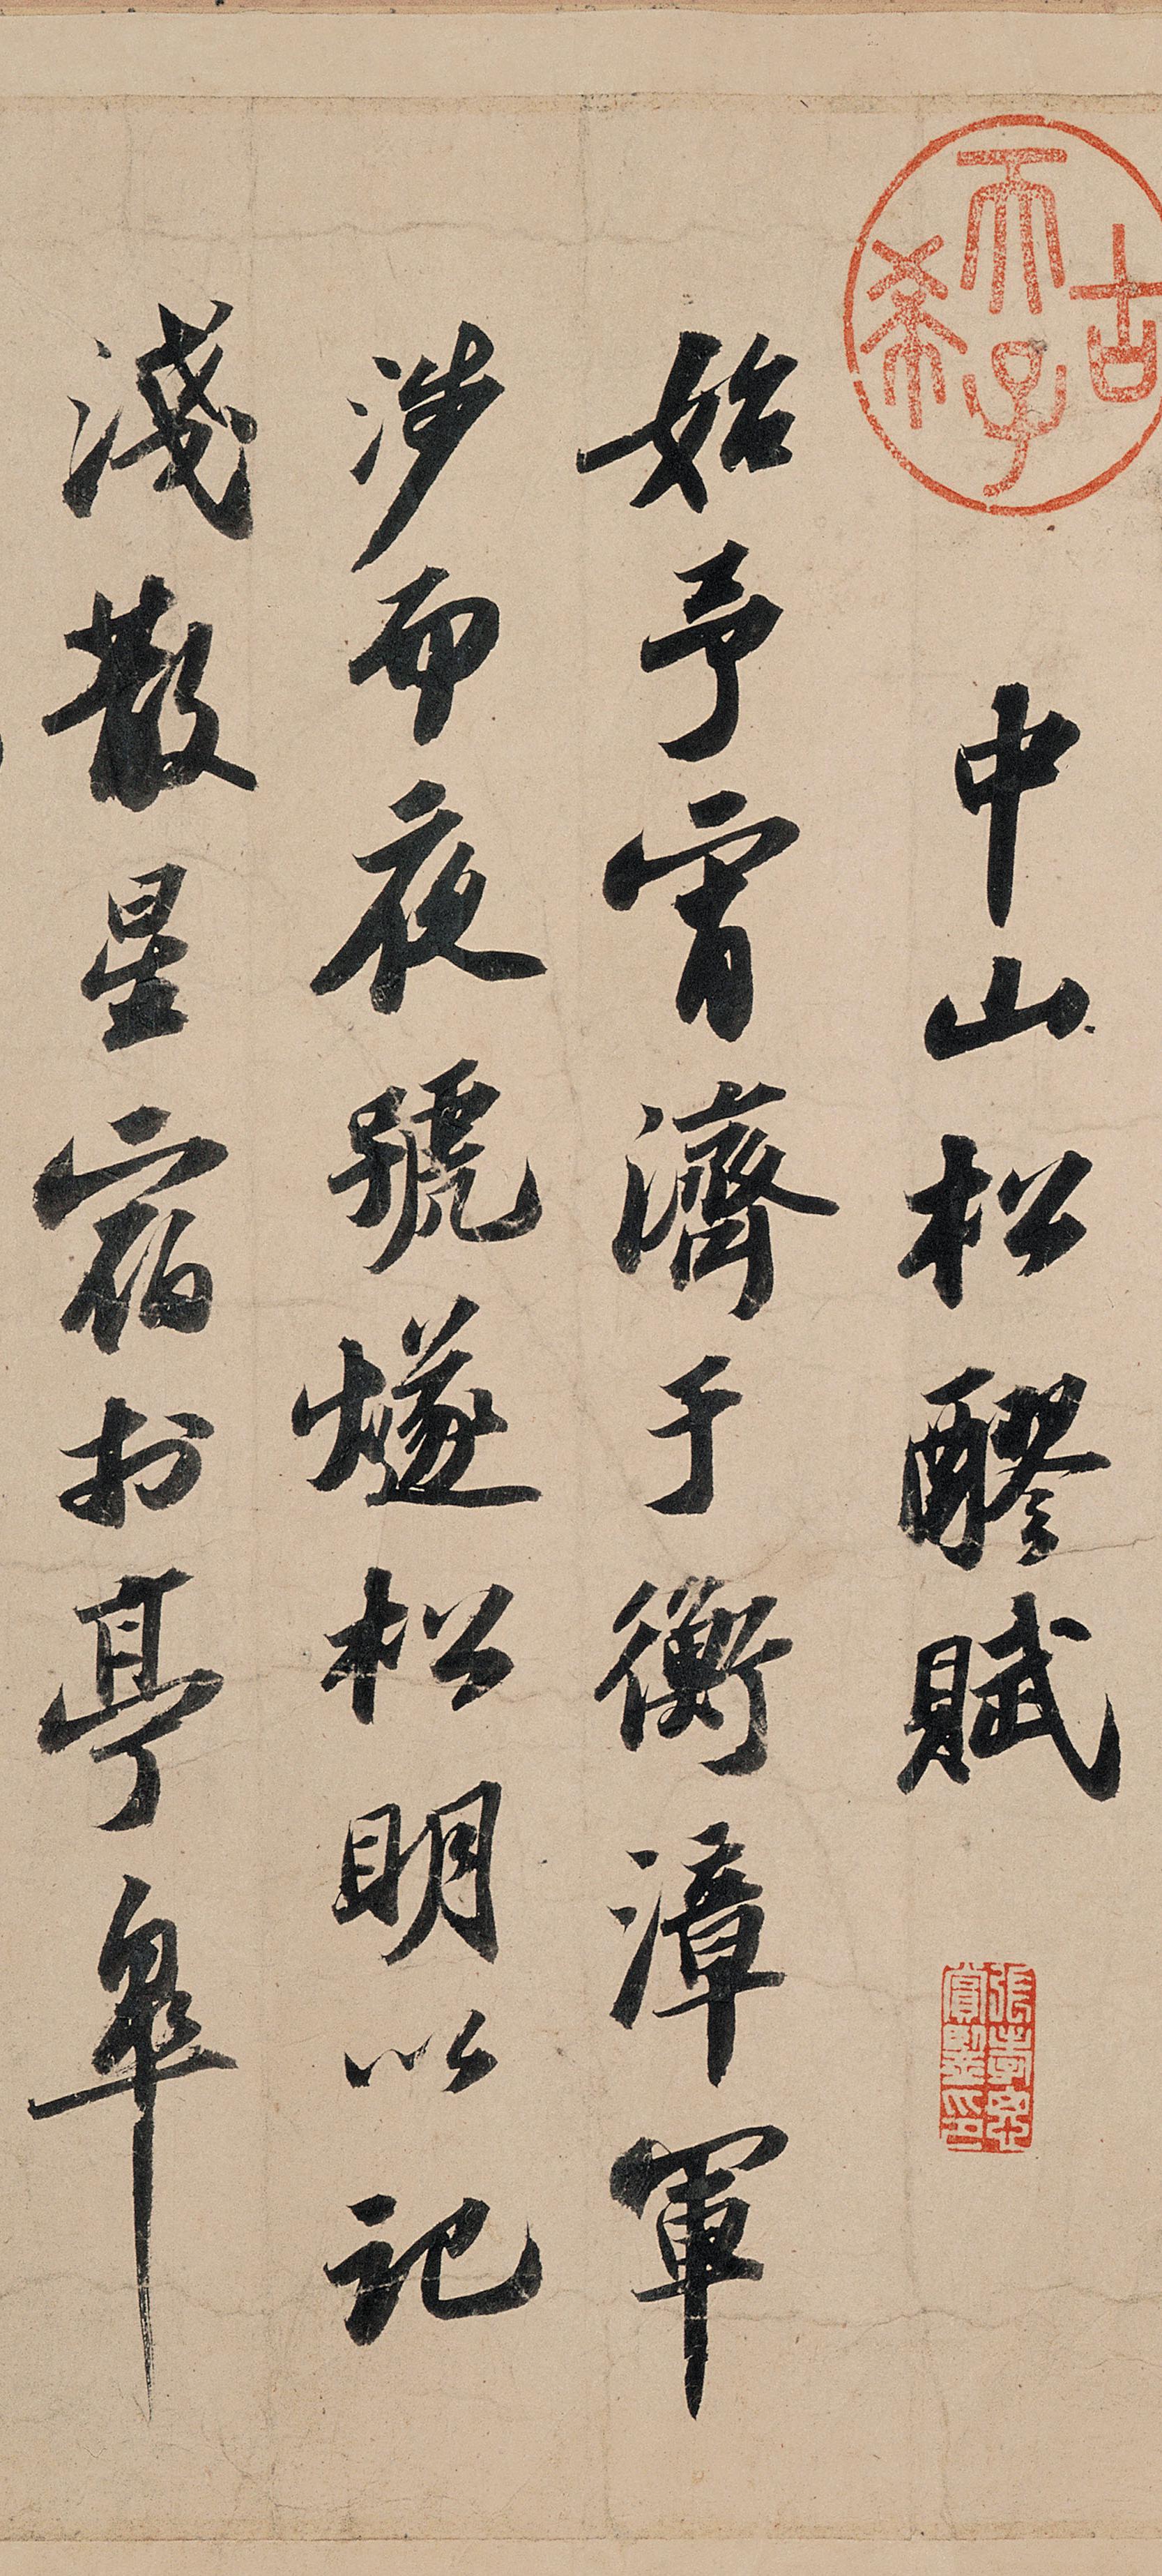 古希天子
中山松醪賦
張孝思
賞鑒印
始予宵濟于衡漳軍
涉而夜號燧松明以記
淺散星宿扵亭皋